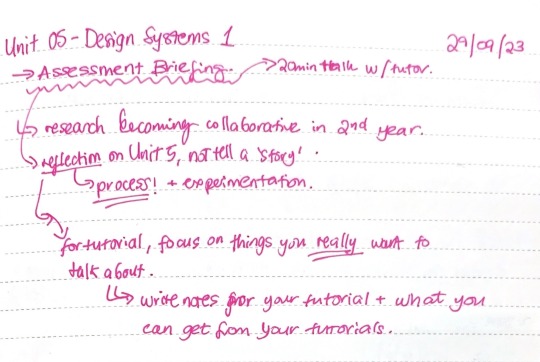 Unit 05 - Design Systems 1
29/09/23
→ Assessment Briefing. → 20min talk w/tutor.
↳ research becoming collaborative in 2nd year.
↳ reflection on Unit 5, not tell a 'story'.
↳ process! + experimentation.
for tutorial, focus on things you really want to
talk about.
↳ write notes for your tutorial + what you
can get from your tutorials.